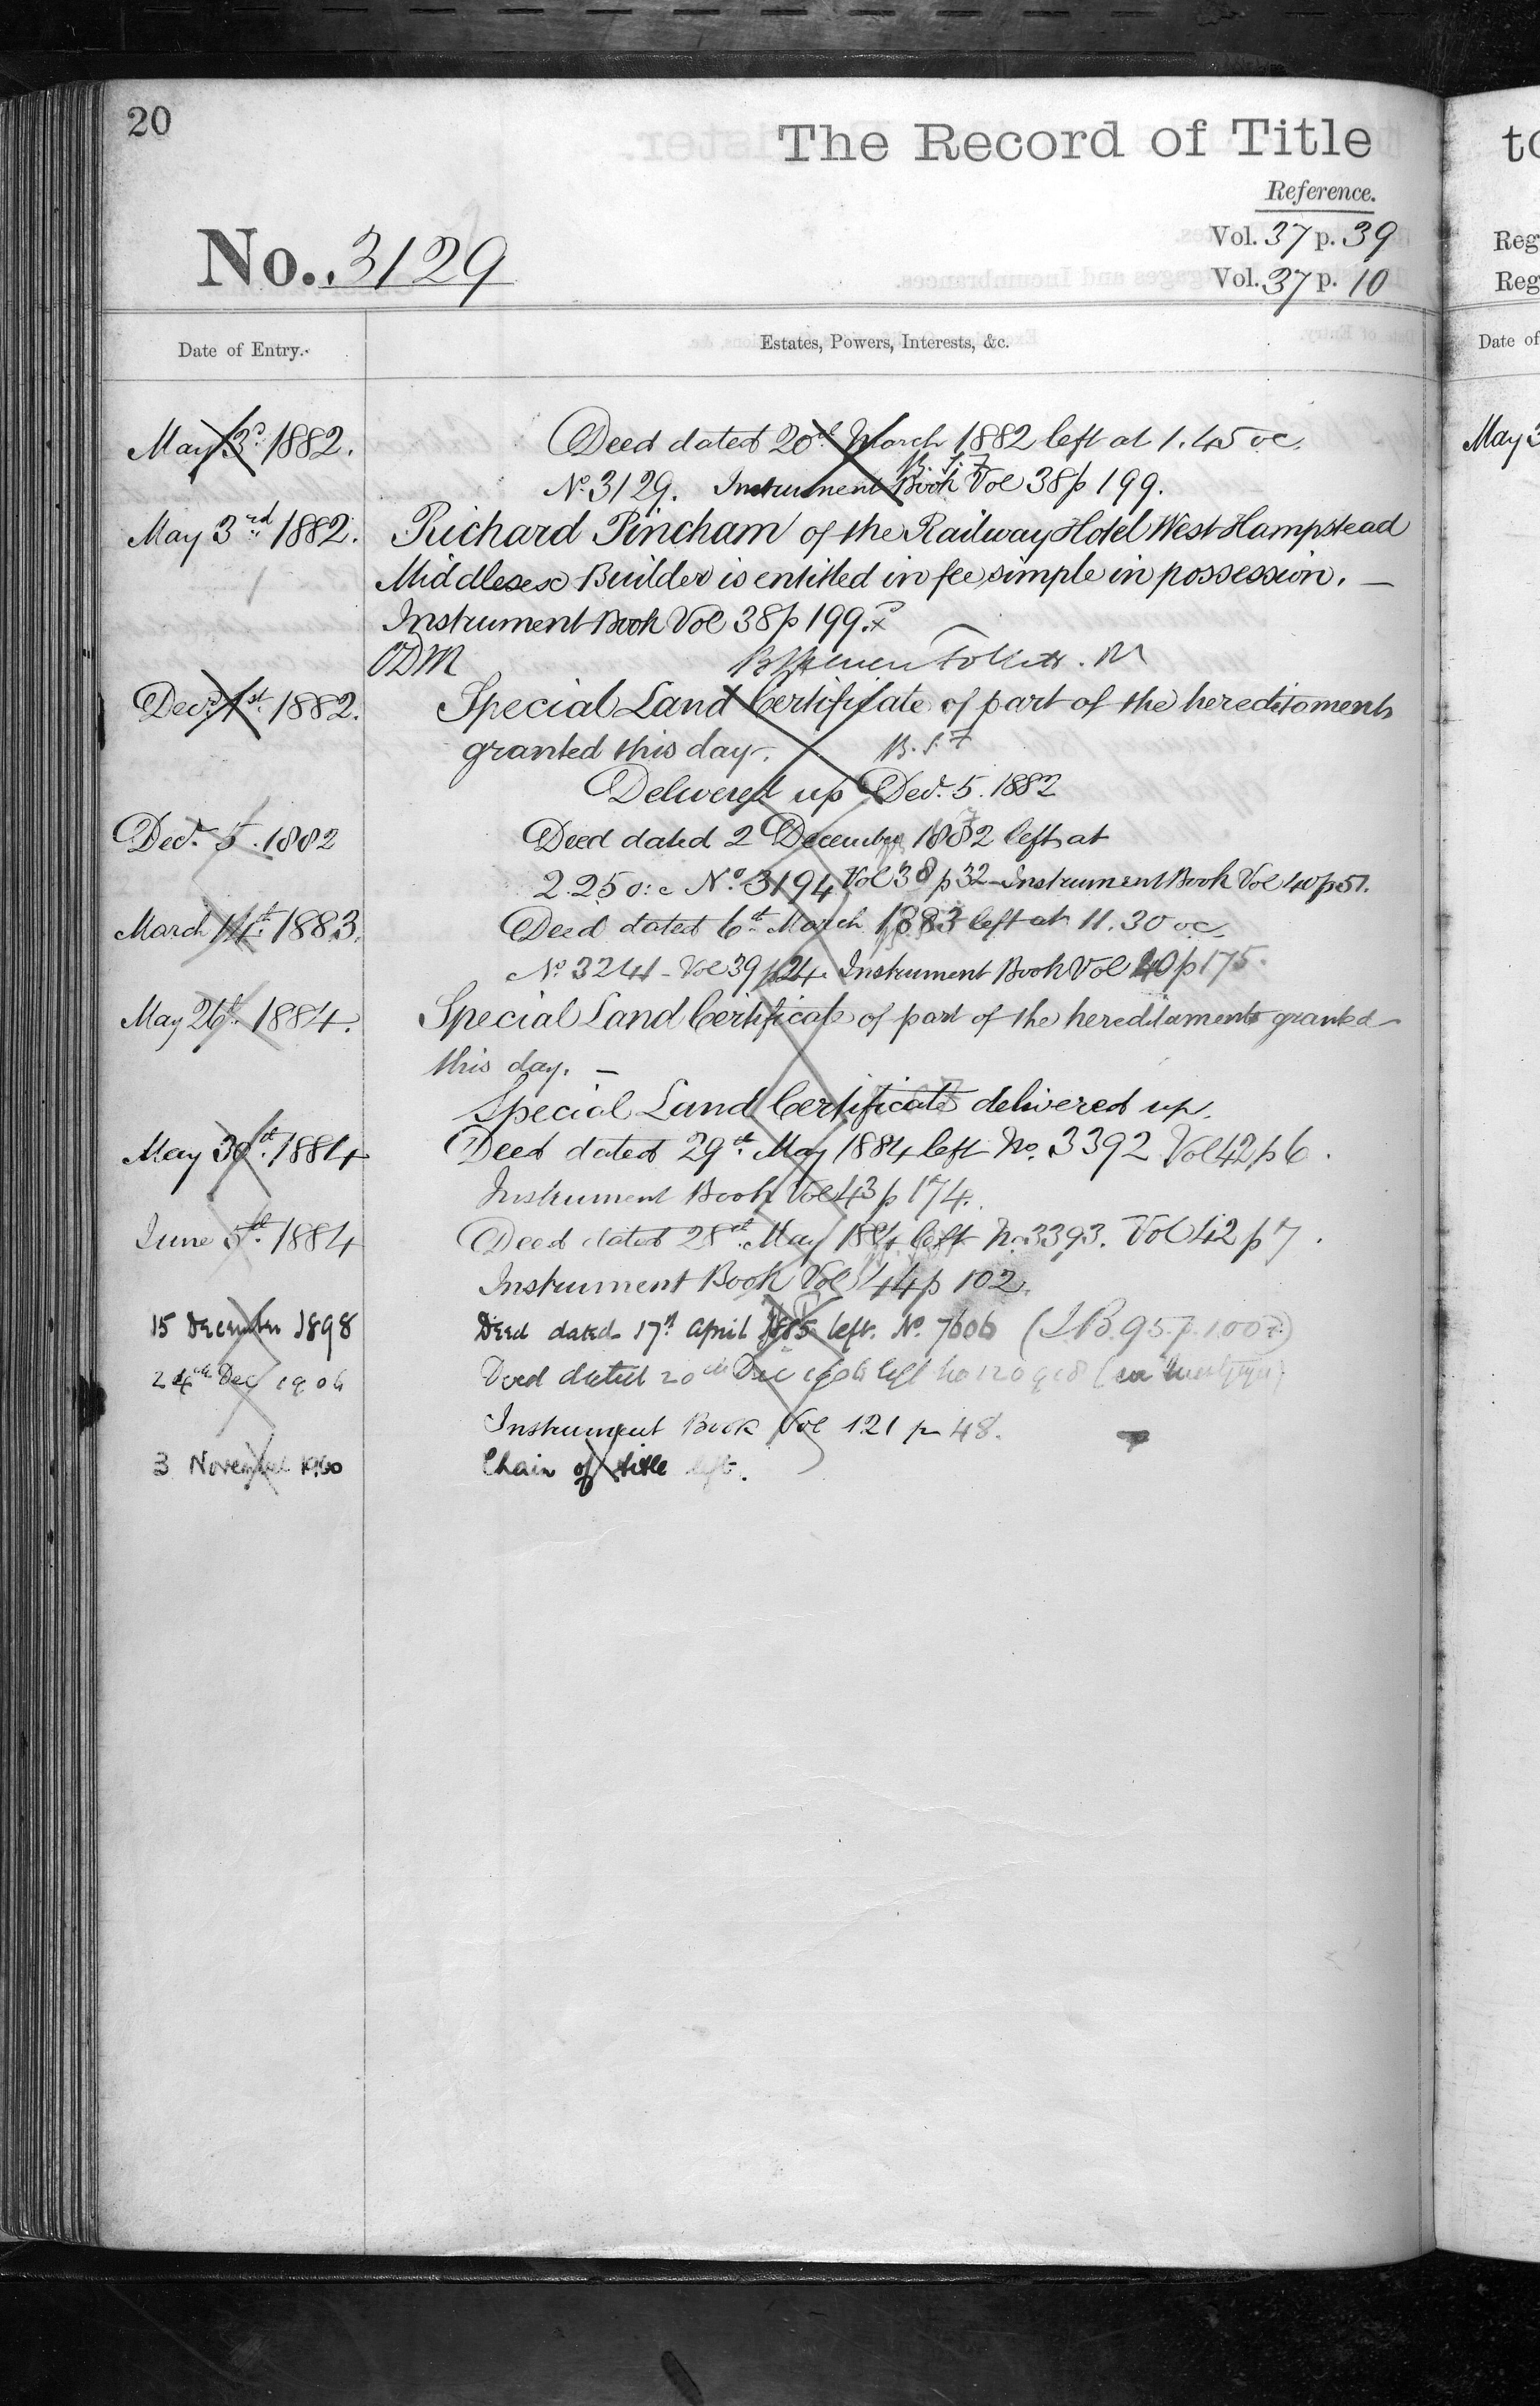 20
The Record of Title
Reference.
No. 3129
Vol. 37 p. 39
Vol. 37 p. 10
Date of Entry.
Estates, Powers, Interests, &c.
May 3rd 1882. Deed dated 20th March 1882 left at 1.45 oc.
No. 3129. Instrument Book Vol 38 p 199.
B. S. F
May 3rd 1882. Richard Pincham of the Railway Hotel West Hampstead
Middlesex Builder is entitled in fee simple in possession. —
Instrument Book Vol 38 p 199.
ODM
Decr. 1st. 1882. Special Land Certificate of part of the hereditaments
granted this day. B. S. F
Delivered up Decr. 5. 1882
Decr. 5. 1882 Deed dated 2 December 1882 left at
2.25 o:c No. 3194 Vol 38 p 32 - Instrument Book Vol 40 p 51.
March 14th. 1883. Deed dated 6th March 1883 left at 11.30 oc.
No. 3241 - Vol 39 p 24. Instrument Book Vol 40 p 175.
May 26th. 1884. Special Land Certificate of part of the hereditaments granted
this day. —
Special Land Certificate delivered up.
May 30th. 1884 Deed dated 29th May 1884 left No. 3392 Vol 42 p 6.
Instrument Book Vol 43 p 174.
June 5th. 1884 Deed dated 28th May 1884 left No. 3393. Vol 42 p 7.
Instrument Book Vol 44 p 102.
15 December 1898 Deed dated 17th April 1885 left. No. 7606 (I.B. 95. p. 1007.)
24th Dec 1906 Deed dated 20th Dec 1906 left No 120918
Instrument Book Vol 121 p 48.
3 November 1960 Chain of title left.
to
Reg
Reg
Date of
May 3